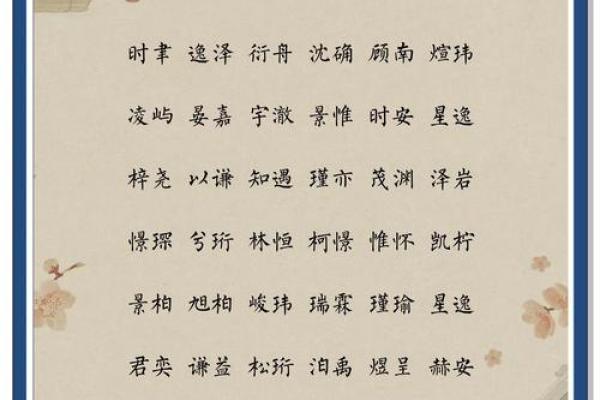 时聿 逸泽 衍舟 沈确 顾南 煊玮
凌屿 晏嘉 宇澈 景惟 时安 星逸
梓尧 以谦 知遇 瑾亦 茂渊 泽岩
憬琛 兮珩 林恒 柯憬 惟怀 凯柠
景柏 旭柏 峻玮 瑞霖 瑾瑜 星逸
君奕 谦益 松珩 泊禹 煜呈 赫安